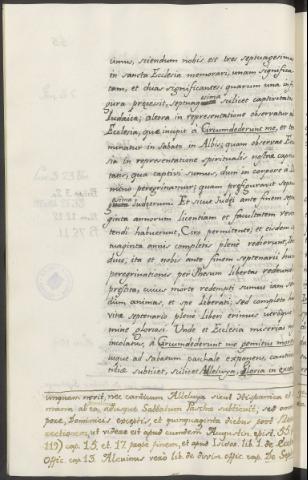 simus, sciendum nobis est tres septuagesimas
in sancta Ecclesia memorari, unam significa-
tam, et duas significantes; quarum una in fi-
gura præcessit, septuagesima scilicet captivitatis
Iudaica; altera in representatione observatur ab
Ecclesia, quæ incipit à Circumdederunt me, et ter-
minatur in sabato in Albis; quam observat Eccle-
sia in representatione spiritualis nostræ captivi-
tatis, qua captivi sumus, dum in corpore à Do-
mino peregrinamur; quam prefiguravit septua-
gesima Iudæorum. Et sicut Iudæi ante finem sep-
tuaginta annorum licentiam et facultatem rever-
tendi habuerunt, Ciro permitente; et eisdem sep-
tuaginta annis completis plene redierunt, In-
duti; ita et nobis ante finem septenarii hujus
peregrinationis per Christum libertas reddenda
præfata, cujus morte redempti sumus jam secun-
dum animas, et spe liberati; sed completo hujus
vitæ septenario plene liberi erimus utrique
mine gloriosi. Unde et Ecclesia miserias
incolatus, à Circumdederunt me gemitus mortis
usque ad sabatum paschale exponens, cantica
lætitiæ subticet, scilicet Alleluya, Gloria in exce-
unquam novit, nec canticum Alleluya sicut Hispanica et
mana ab ea, adusque Sabbatum Pascha subticuit, sed o
pore, Dominicis exceptis, et quinquaginta diebus post
rectionem, ut videre est apud eundem Augustin. epist. 55
119) cap. 15. et 17. prope finem, et apud Isidor. lib. 1. de Eccl.
Offic. cap. 13. Alcuinus vero lib. de divin. offic. cap. De Sep